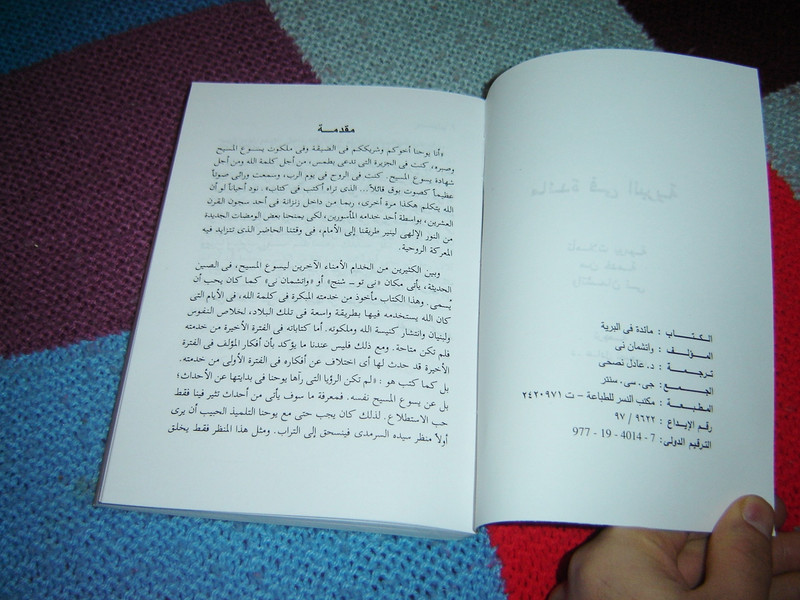 الكتـــاب : مائدة فى البرية
المؤلف : واتشمان نى
ترجمة : د. عادل نصحى
الجمع : جى. سى. سنتر
المطبعة : مكتب النسر للطباعة – ت ٢٤٢٠٩٧١
رقم الإيداع : ٩٦٢٢ / ٩٧
الترقيم الدولى : 7 - 4014 - 19 - 977
مقدمـــة
«أنا يوحنا أخوكم وشريككم فى الضيقة وفى ملكوت يسوع المسيح
وصبره، كنت فى الجزيرة التى تدعى بطمس، من أجل كلمة الله ومن أجل
شهادة يسوع المسيح. كنت فى الروح فى يوم الرب، وسمعت ورائى صوتاً
عظيماً كصوت بوق قائلاً... الذى تراه أكتب فى كتاب». نود أحياناً لو أن
الله يتكلم هكذا مرة أخرى، ربما من داخل زنزانة فى أحد سجون القرن
العشرين، بواسطة أحد خدامه المأسورين، لكى يمنحنا بعض الومضات الجديدة
من النور الإلهى لينير طريقنا إلى الأمام، فى وقتنا الحاضر الذى تتزايد فيه
المعركة الروحية.
وبين الكثيرين من الخدام الأمناء الآخرين ليسوع المسيح، فى الصين
الحديثة، يأتى مكان «نى تو ــ شنج» أو «واتشمان نى» كما كان يحب أن
يُسمى. وهذا الكتاب مأخوذ من خدمته المبكرة فى كلمة الله، فى الأيام التى
كان الله يستخدمه فيها بطريقة واسعة فى تلك البلاد، لخلاص النفوس
ولبنيان وانتشار كنيسة الله وملكوته. أما كتاباته فى الفترة الأخيرة من خدمته
فلم تكن متاحة. ومع ذلك فليس عندنا ما يؤكد بأن أفكار المؤلف فى الفترة
الأخيرة قد حدث لها أى اختلاف عن أفكاره فى الفترة الأولى من خدمته.
بل كما كتب هو : «لم تكن الرؤيا التى رآها يوحنا فى بدايتها عن الأحداث؛
بل عن يسوع المسيح نفسه. فمعرفة ما سوف يأتى من أحداث تثير فينا فقط
حب الاستطلاع. لذلك كان يجب حتى مع يوحنا التلميذ الحبيب أن يرى
أولاً منظر سيده السرمدى فينسحق إلى التراب. ومثل هذا المنظر فقط يخلق